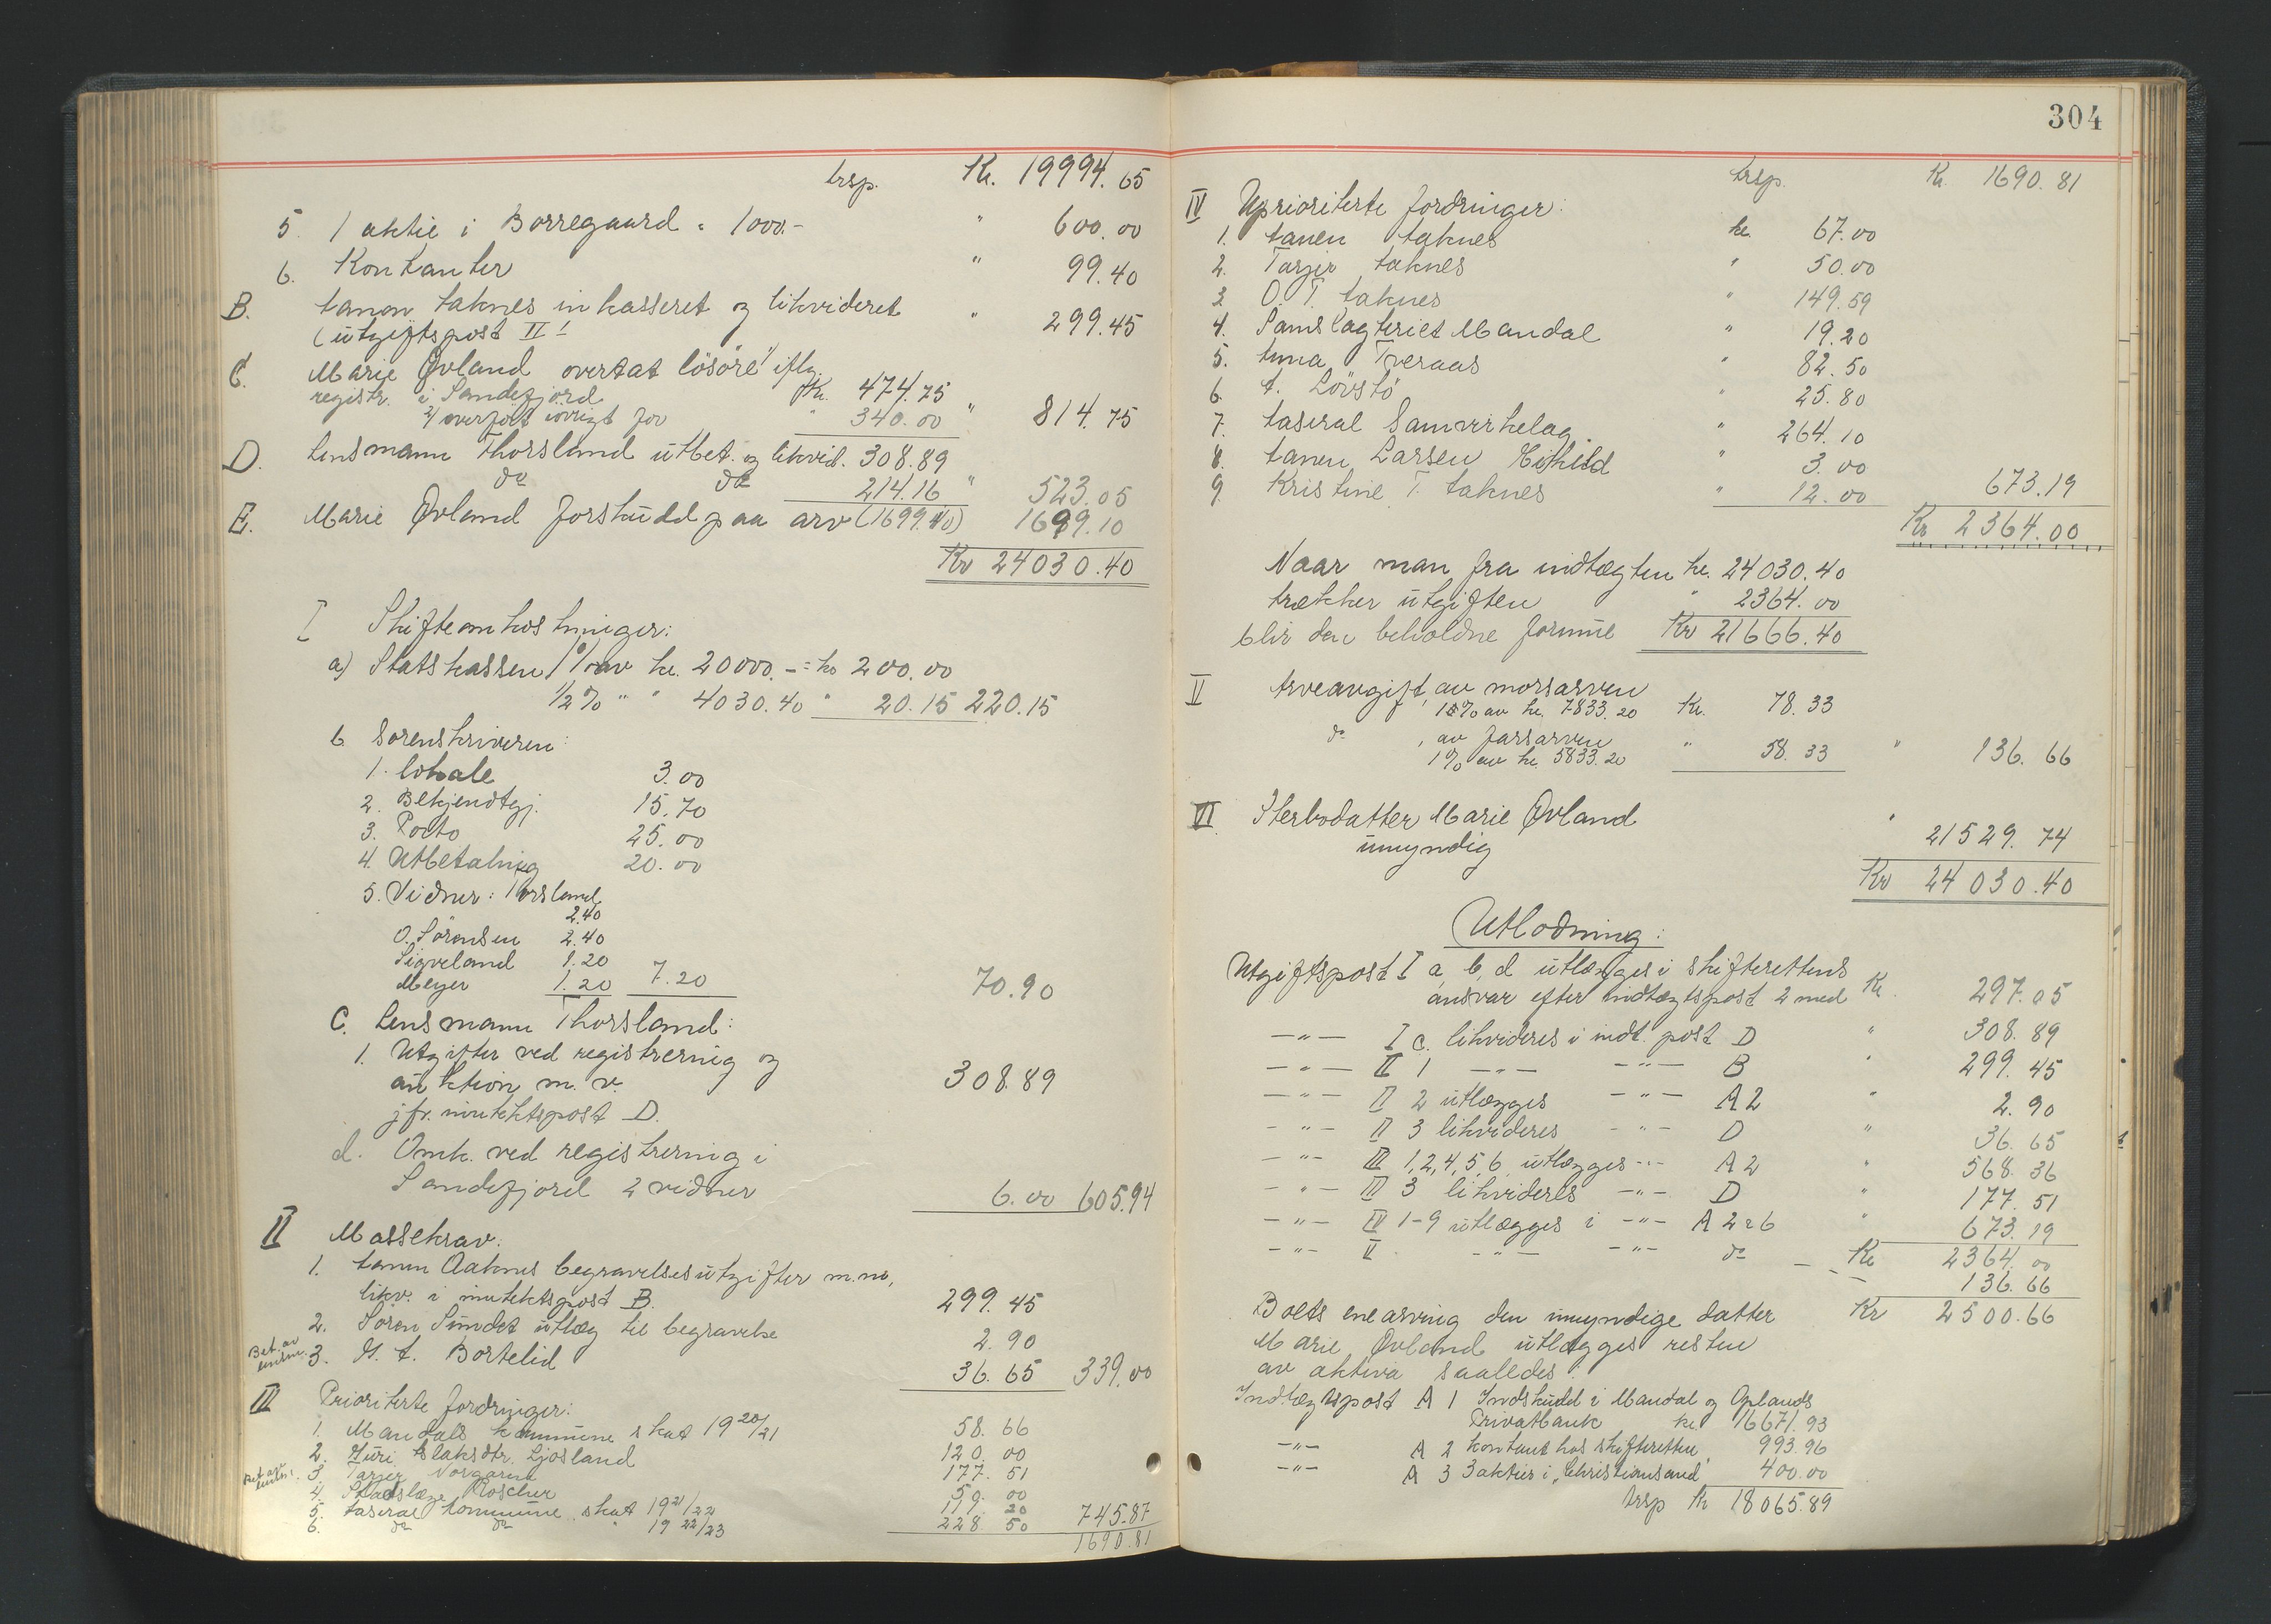 trsp. Kr. 19994.65
5. 1 aktie i Borregaard à 1000.- " 600.00
6. Kontanter " 99.40
B. Aanon Aaknes inkasseret og likvideret
(utgiftspost II 1 " 299.45
C. Marie Øvland overtat løsøre 1/ iflg.
registr. i Sandefjord Kr. 474.75
2/ overført øvrigt for " 340.00 " 814.75
D. Lensmann Thorsland utbet. og likvid. 308.89
do do 214.16 " 523.05
E. Marie Øvland forskudd paa arv (1699.10) 1699.10
Kr 24030.40
I Skifteomkostninger:
a) Statskassen 1% av kr. 20000.- = kr 200.00
1/2% " " 4030.40 " 20.15 220.15
b Sorenskriveren:
1. lokale 3.00
2. Bekjendtgj. 15.70
3. Porto 25.00
4. Utbetalning 20.00
5. Vidner: Thorsland
2.40
O. Sørensen 2.40
Sigveland 1.20
Meyer 1.20 7.20 70.90
C. Lensmann Thorsland:
1. Utgifter ved registrering og
auktion m. v. 308.89
jfr. inntektspost D.
d. Omk. ved registrering i
Sandefjord 2 vidner 6.00 605.94
II Massekrav:
1. Aanen Aaknes begravelsesutgifter m.m,
likv. i inntektspost B. 299.45
2. Søren Sundet utlæg til begravelse 2.90
Bet. av
lensm. 3. G. A. Bortelid 36.65 339.00
III Prioriterte fordringer:
1. Mandals kommune skat 19 20/21 58.66
2. Guri Aslaksdtr. Ljosland 120.00
Bet. av
lensm. 3. Tarjer Norgarden 177.51
4. Stadslæge Roscher 50.00
5. Aaseral kommune, skat 19 21/22 111.20 745.87
6. do do " 19 22/23 228.50
1690.81
304
trsp. Kr. 1690.81
IV Uprioriterte fordringer:
1. Aanen Aaknes kr. 67.00
2. Tarjer Aaknes " 50.00
3. O. T. Aaknes " 149.59
4. Samslagteriet Mandal " 19.20
5. Anna Tveraas " 82.50
6. A. Løvstø " 25.80
7. Aaseral Samvirkelag " 264.10
8. Aanen Larsen Eikild " 3.00
9. Kristine T. Aaknes " 12.00 673.19
Kr 2364.00
Naar man fra indtægten kr. 24030.40
trækker utgiften " 2364.00
blir den beholdne formue Kr 21666.40
V Arveavgift, av morsarven
1% av kr. 7833.20 Kr. 78.33
do , av farsarven
1% av kr. 5833.20 " 58.33 " 136.66
VI Sterbodatter Marie Øvland
umyndig " 21529.74
Kr 24030.40
Utlodning:
Utgiftspost I a, b, d utlægges i skifterettens
ansvar efter indtægtspost 2 med Kr. 297.05
—"— I c. likvideres i indt. post D " 308.89
—"— II 1 —"— —"— B " 299.45
—"— II 2 utlægges —"— A 2 " 2.90
—"— II 3 likvideres —"— D " 36.65
—"— III 1,2,4,5,6 utlægges —"— A 2 " 568.36
—"— III 3 likvideres —"— D " 177.51
—"— IV 1-9 utlægges i —"— A 2 a 6 " 673.19
Kr 2364.00
—"— V —"— —"— do — — 136.66
Kr 2500.66
Boets enearving den umyndige datter
Marie Øvland utlægges resten
av aktiva saaledes:
Indtægtspost A 1 Indskudd i Mandal og Oplands
Privatbank kr. 16671.93
—"— A 2 kontant hos skifteretten 993.96
—"— A 3 3 aktier i "Christianssand" 400.00
trsp Kr 18065.89